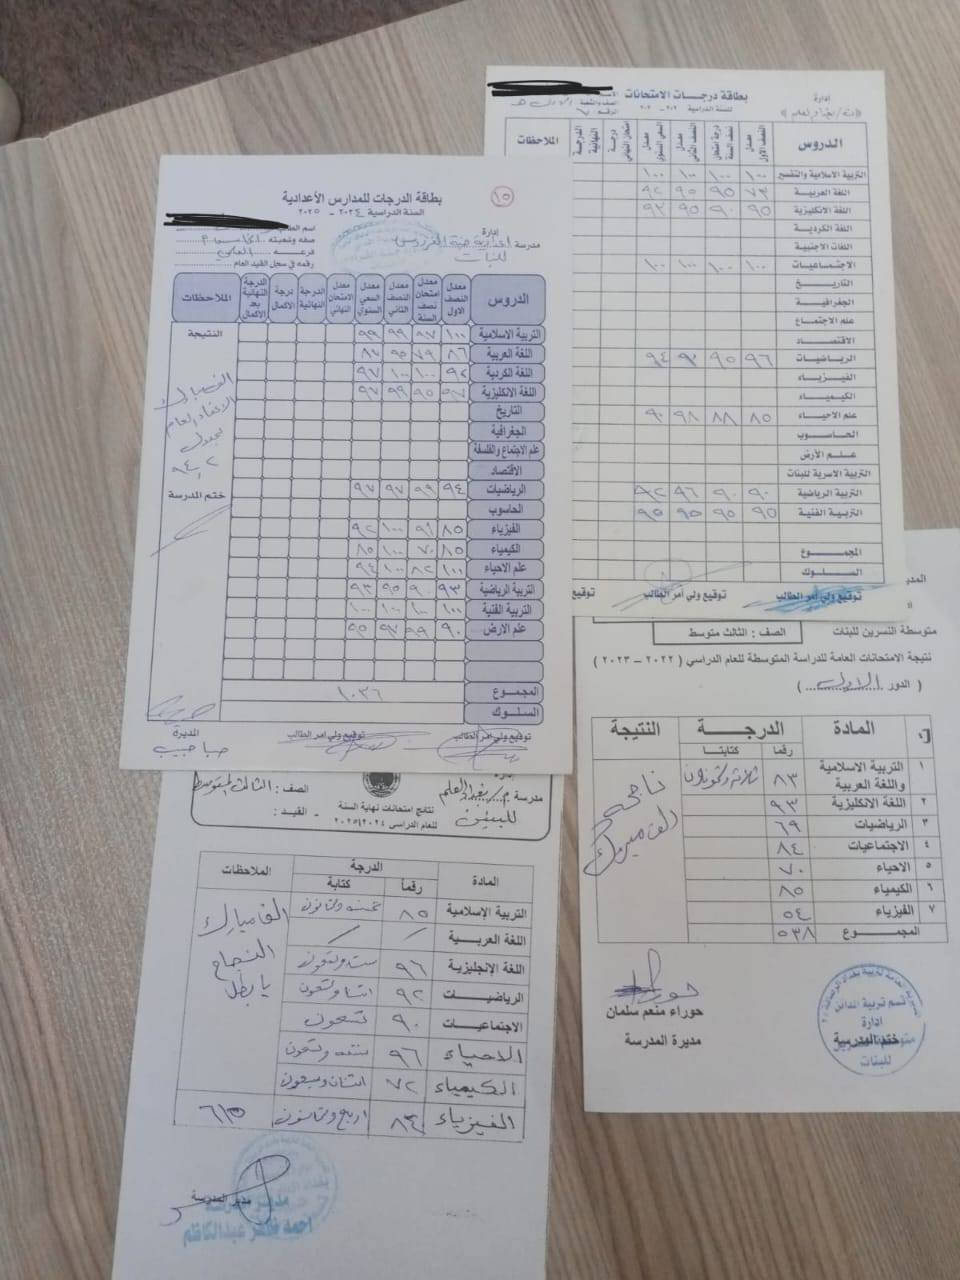 بطاقة درجات الامتحانات
إدارة
للسنة الدراسية
الدروس
معدل النصف الاول
درجة امتحان نصف السنة
معدل النصف الثاني
معدل السعي السنوي
درجة امتحان النهائي
الدرجة النهائية
الملاحظات
التربية الاسلامية والتفسير ١٠٠ ١٠٠ ١٠٠ ١٠٠
اللغة العربية ٧٣ ٩٥ ٩٥ ٩٢
اللغة الانكليزية ٩٥ ٩٠ ٩٥ ٩٣
اللغة الكردية
اللغات الاجنبية
الاجتماعيات ١٠٠ ١٠٠ ١٠٠ ١٠٠
التاريخ
الجغرافية
علم الاجتماع
الاقتصاد
الرياضيات ٩٦ ٩٥ ٩٢ ٩٤
الفيزياء
الكيمياء
علم الاحياء ٨٥ ٨٨ ٩٨ ٩٠
الحاسوب
علم الأرض
التربية الاسرية للبنات
التربية الرياضية ٩٠ ٩٠ ٩٦ ٩٢
التربية الفنية ٩٥ ٩٥ ٩٥ ٩٥
المجموع
السلوك
توقيع ولي امر الطالب توقيع ولي امر الطالب توقيع
١٥
بطاقة الدرجات للمدارس الأعدادية
السنة الدراسية ٢٠٢٤ - ٢٠٢٥
إدارة
مدرسة اعدادية جنة الفردوس
للبنات
اسم الطالب
صفه وشعبته
فرعه العلمي
رقمه في سجل القيد العام
الدروس
معدل النصف الاول
معدل امتحان نصف السنة
معدل النصف الثاني
معدل السعي السنوي
معدل الامتحان النهائي
الدرجة النهائية
درجة الاكمال
الدرجة النهائية بعد الاكمال
الملاحظات
التربية الاسلامية ١٠٠ ٩٧ ٩٩ ٩٩
اللغة العربية ٨٦ ٧٩ ٩٥ ٨٧
اللغة الكردية ٩٢ ١٠٠ ١٠٠ ٩٧
اللغة الانكليزية ٩٧ ٩٥ ٩٩ ٩٧
التاريخ
الجغرافية
علم الاجتماع والفلسفة
الاقتصاد
الرياضيات ٩٤ ٩٩ ٩٧ ٩٧
الحاسوب
الفيزياء ٨٥ ٩١ ١٠٠ ٩٢
الكيمياء ٨٥ ٧٠ ١٠٠ ٨٥
علم الاحياء ١٠٠ ٨٢ ١٠٠ ٩٤
التربية الرياضية ٩٣ ٩٠ ٩٥ ٩٣
التربية الفنية ١٠٠ ١٠٠ ١٠٠ ١٠٠
علم الارض ٩٠ ٩٩ ٩٧ ٩٥
المجموع ١٠٣٦
السلوك
النتيجة
الف مبارك
الاعفاء العام
بمعدل
٩٤,٢
ختم المدرسة
توقيع ولي امر الطالب توقيع ولي امر الطالب
المديرة
متوسطة النسرين للبنات
الصف : الثالث متوسط
نتيجة الامتحانات العامة للدراسة المتوسطة للعام الدراسي ( ٢٠٢٢ – ٢٠٢٣ )
( الدور الاول )
المادة
الدرجة
رقما
كتابتا
النتيجة
١ التربية الاسلامية واللغة العربية ٨٣ ثلاثة وثمانون
٢ اللغة الانكليزية ٩٣
٣ الرياضيات ٦٩
٤ الاجتماعيات ٨٤
٥ الاحياء ٧٠
٦ الكيمياء ٨٥
٧ الفيزياء ٥٤
المجموع ٥٣٨
ناجحة
الف مبروك
حوراء منعم سلمان
مديرة المدرسة
ختم المدرسة
إدارة
للبنات
للبنين
الصف : الثالث المتوسط
نتائج امتحانات نهاية السنة
للعام الدراسي ٢٠٢٤/٢٠٢٥
- القيد :
المادة
الدرجة
رقماً
كتابة
الملاحظات
التربية الإسلامية ٨٥ خمسة وثمانون
اللغة العربية
اللغة الإنجليزية ٩٦ ستة وتسعون
الرياضيات ٩٢ اثنا وتسعون
الاجتماعيات ٩٠ تسعون
الاحياء ٩٦ ستة وتسعون
الكيمياء ٧٢ اثنان وسبعون
الفيزياء ٨٤ اربع وثمانون ٦١٥
الف مبارك
النجاح
يا بطل
مدير المدرسة